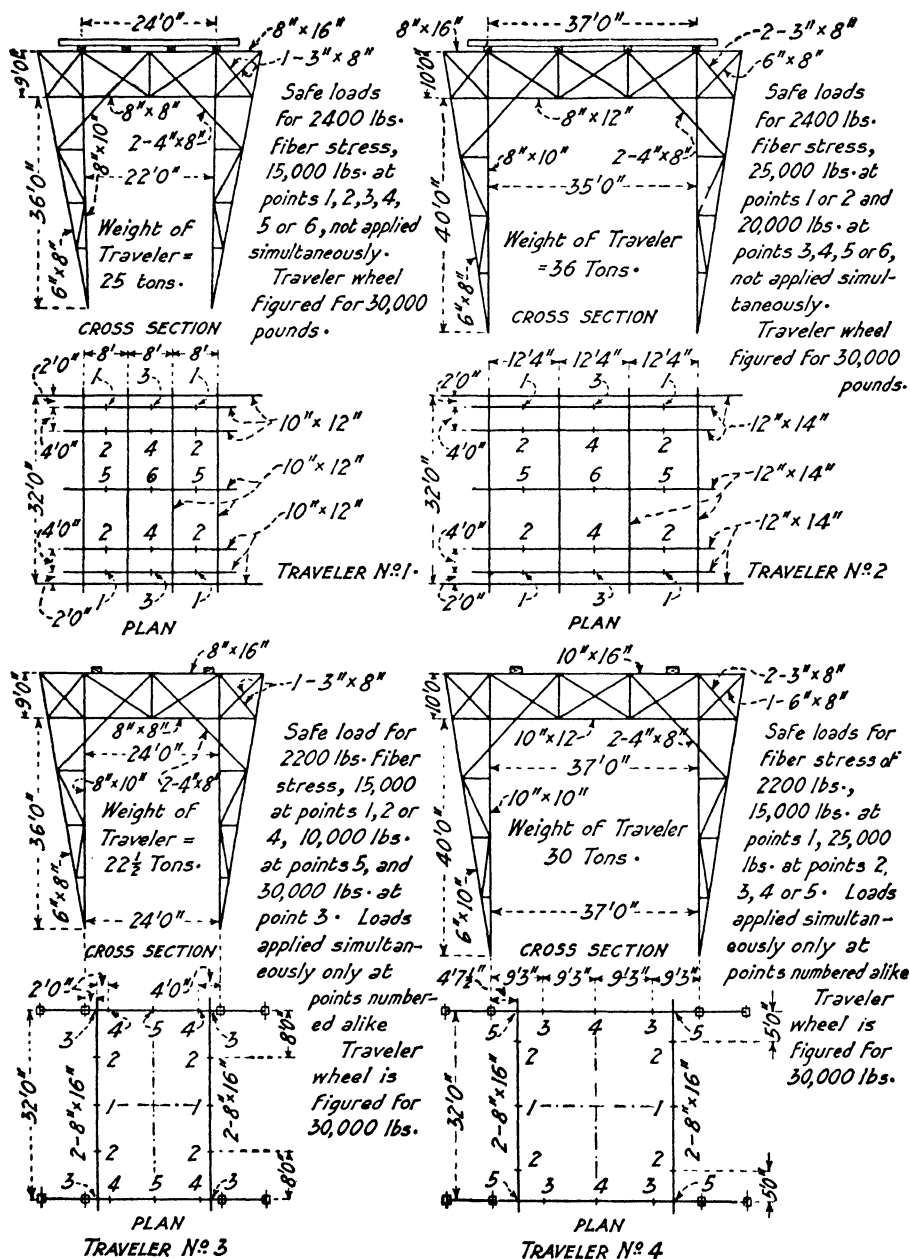 24'0"
8"×16"
1-3"×8"
9'0"
8"×8"
8"×10"
2-4"×8"
22'0"
36'0"
6"×8"
Weight of
Traveler=
25 tons.
Safe loads
for 2400 lbs.
Fiber stress,
15,000 lbs. at
points 1,2,3,4,
5 or 6, not applied
simultaneously.
Traveler wheel
Figured for 30,000
pounds.
CROSS SECTION
2'0"
8' 8' 8'
1 3 1
10"×12"
4'0"
2 4 2
5 6 5
32'0"
10"×12"
10"×12"
4'0"
2 4 2
2'0"
1 3 1
TRAVELER Nº 1.
PLAN
37'0"
8"×16"
2-3"×8"
6"×8"
10'0"
8"×12"
8"×10"
2-4"×8"
35'0"
40'0"
6"×8"
Weight of Traveler
=36 Tons.
Safe loads
for 2400 lbs.
Fiber stress,
25,000 lbs. at
points 1 or 2 and
20,000 lbs. at
points 3,4,5 or 6,
not applied simul-
taneously.
Traveler wheel
figured for 30,000
pounds.
CROSS SECTION
12'4" 12'4" 12'4"
2'0"
1 3 1
12"×14"
4'0"
2 4 2
5 6 5
32'0"
12"×14"
12"×14"
4'0"
2 4 2
2'0"
1 3 1
TRAVELER Nº 2
PLAN
8"×16"
1-3"×8"
9'0"
8"×8"
24'0"
8"×10"
2-4"×8"
36'0"
6"×8"
Weight of
Traveler =
22½ Tons.
24'0"
Safe load for
2200 lbs. Fiber
stress, 15,000
at points 1,2 or
4, 10,000 lbs.
at points 5, and
30,000 lbs. at
point 3. Loads
applied simultan-
eously only at
points number-
ed alike
Traveler
wheel is
figured for
30,000 lbs.
CROSS SECTION
2'0"
4'0"
3 4 5 4 3
8'0"
2 2
32'0"
2-8"×16"
1 1
2-8"×16"
2 2
8'0"
3 4 5 4 3
PLAN
TRAVELER Nº 3
10"×16"
2-3"×8"
1-6"×8"
10'0"
10"×12
2-4"×8"
37'0"
10"×10"
40'0"
6"×10"
Weight of Traveler
30 Tons.
37'0"
Safe loads for
Fiber stress of
2200 lbs.,
15,000 lbs. at
points 1, 25,000
lbs. at points 2,
3,4 or 5. Loads
applied simultan-
eously only at
points numbered alike
Traveler
wheel is
figured for
30,000 lbs.
CROSS SECTION
4'7½"
9'3" 9'3" 9'3" 9'3"
5 3 4 3 5
5'0"
2 2
32'0"
2-8"×16"
1 1
2-8"×16"
2 2
5'0"
5 3 4 3 5
PLAN
TRAVELER Nº 4